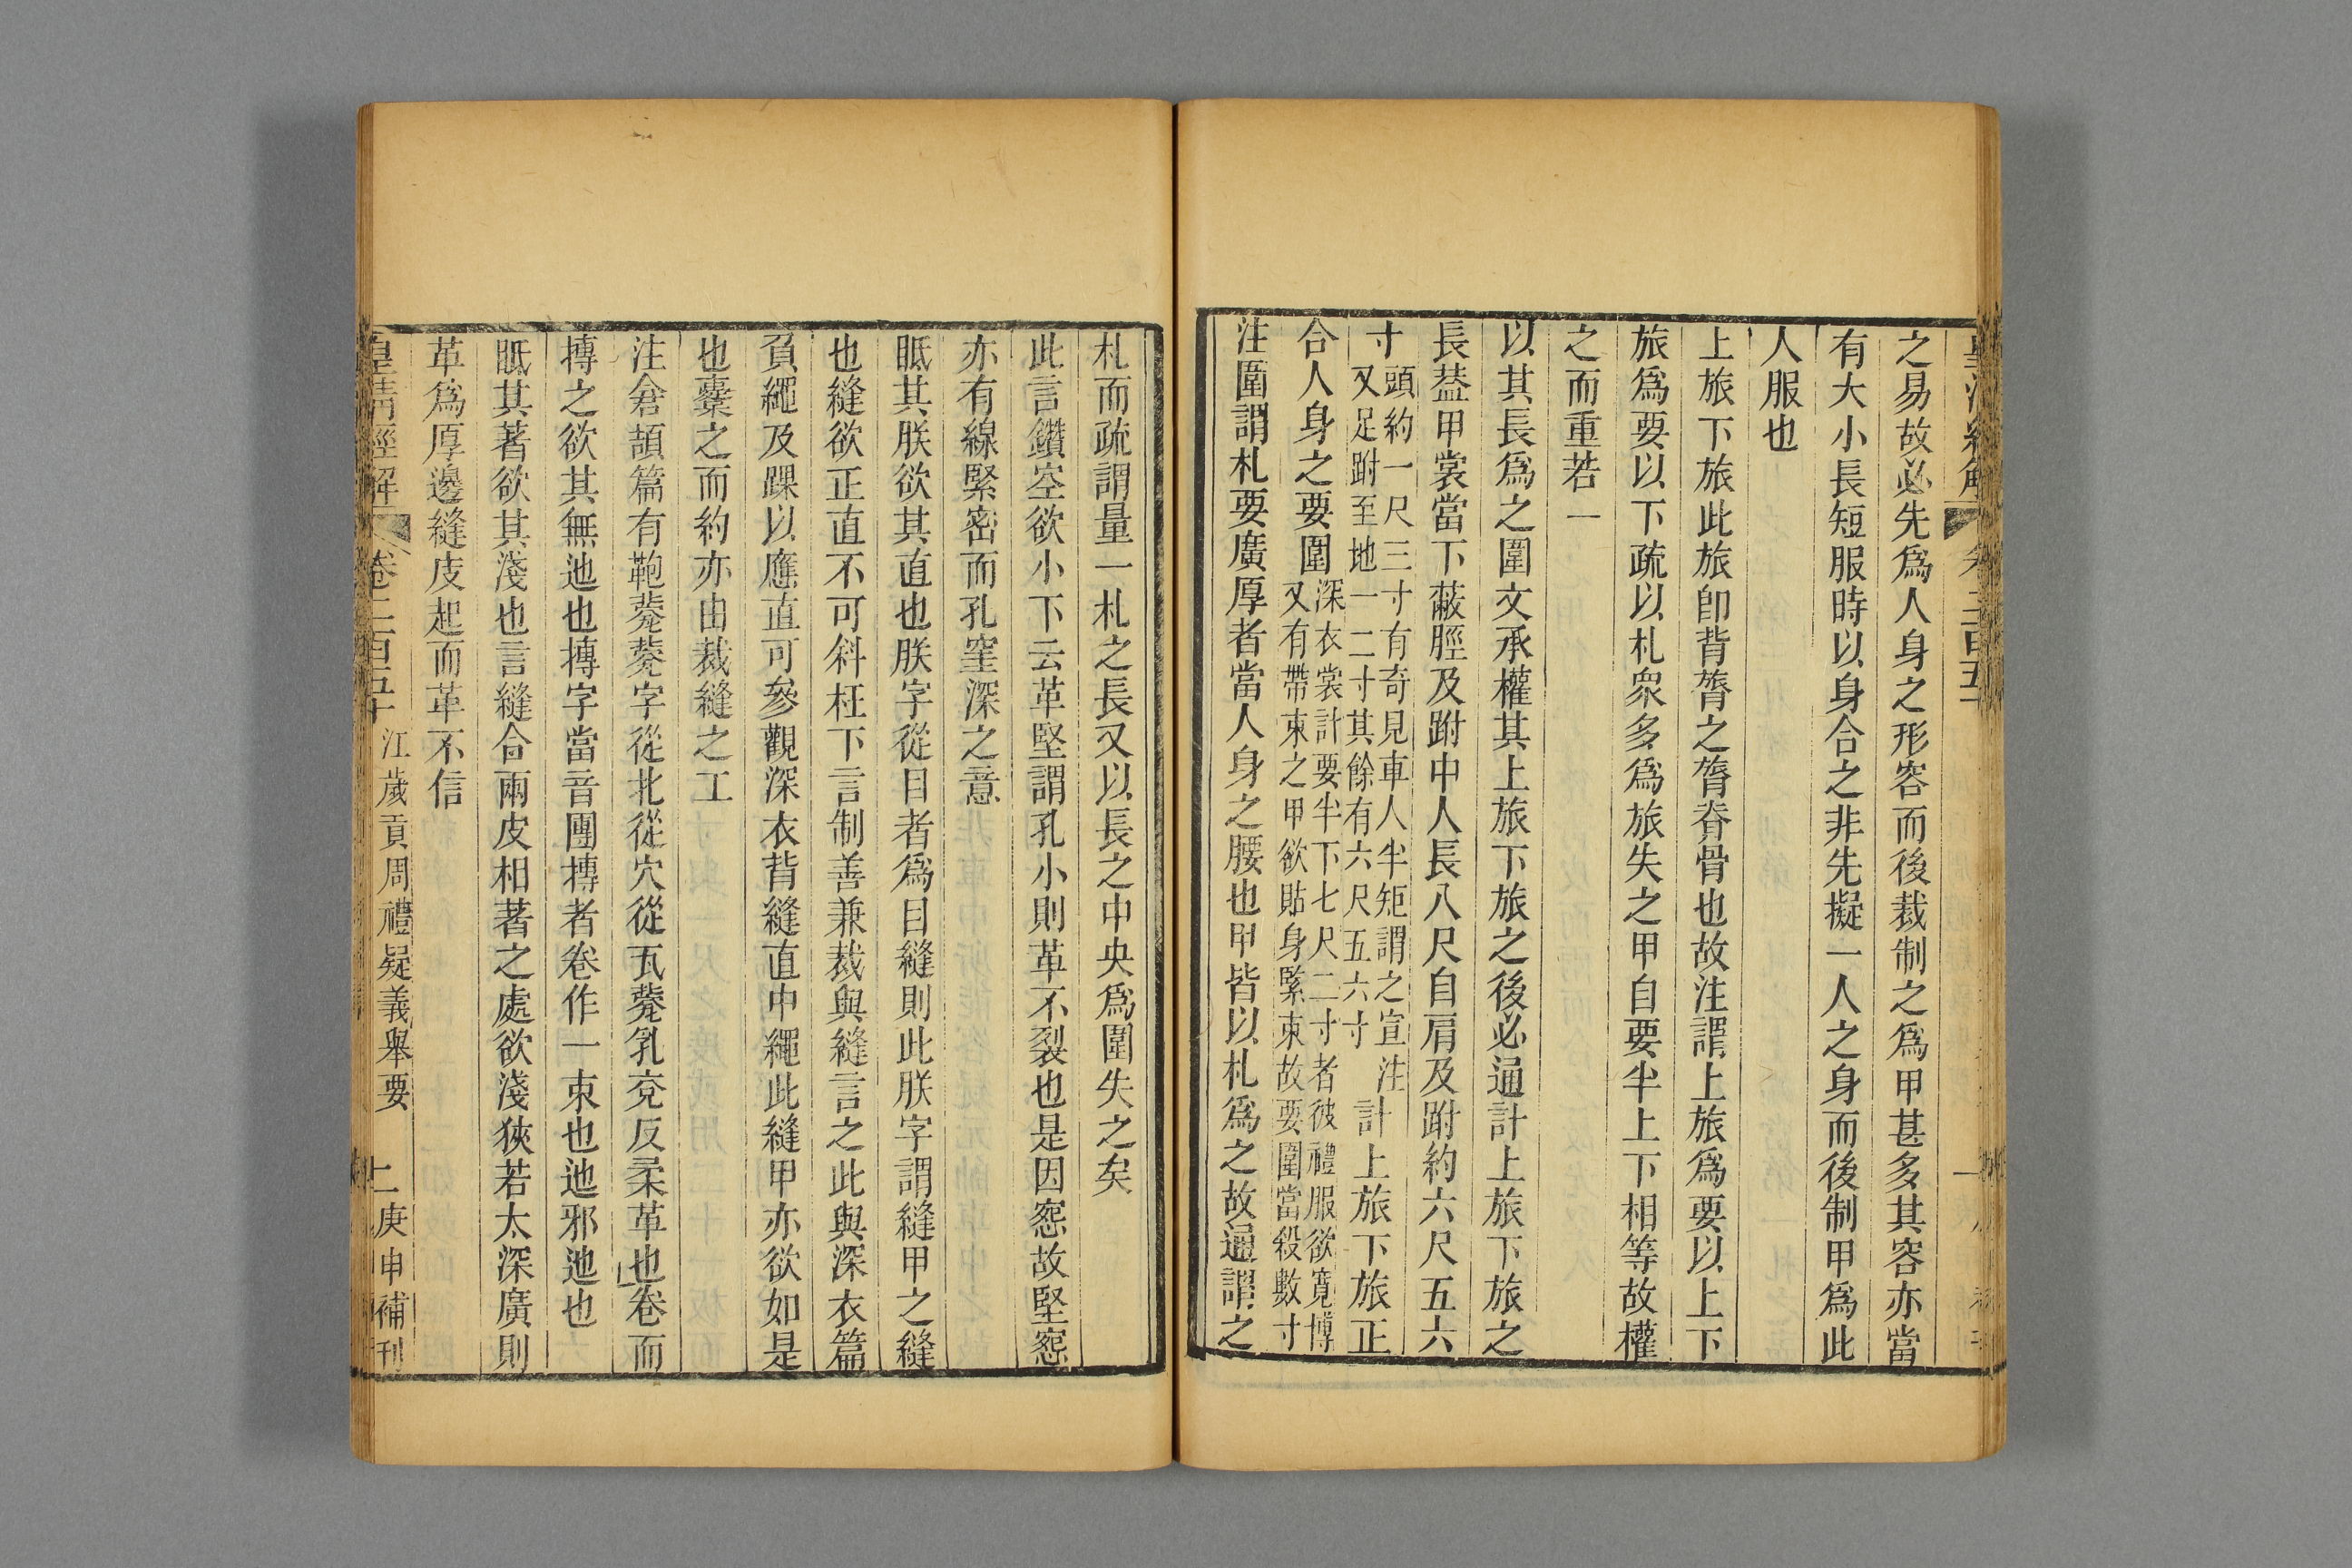 之易故必先爲人身之形容而後裁制之爲甲甚多其容亦當
有大小長短服時以身合之非先擬一人之身而後制甲爲此
人服也
上旅下旅此旅卽背膂之膂脊骨也故注謂上旅爲要以上下
旅爲要以下疏以札衆多爲旅失之甲自要半上下相等故權
之而重若一
以其長爲之圍文承權其上旅下旅之後必通計上旅下旅之
長葢甲裳當下蔽脛及跗中人長八尺自肩及跗約六尺五六
寸頭約一尺三寸有奇見車人半矩謂之宣注
又足跗至地一二寸其餘有六尺五六寸計上旅下旅正
合人身之要圍深衣裳計要半下七尺二寸者彼禮服欲寬博
又有帶束之甲欲貼身緊束故要圍當殺數寸
注圍謂札要廣厚者當人身之腰也甲皆以札爲之故通謂之
札而疏謂量一札之長又以長之中央爲圍失之矣
此言鑽空欲小下云革堅謂孔小則革不裂也是因窓故堅窓
亦有線緊密而孔窐深之意
眂其朕欲其直也朕字從目者爲目縫則此朕字謂縫甲之縫
也縫欲正直不可斜枉下言制善兼裁與縫言之此與深衣篇
負繩及踝以應直可參觀深衣背縫直中繩此縫甲亦欲如是
也櫜之而約亦由裁縫之工
注倉頡篇有鞄㼱㼱字從北從穴從瓦㼱乳兗反柔革也卷而
摶之欲其無迆也摶字當音團摶者卷作一束也迆邪迆也
眂其著欲其淺也言縫合兩皮相著之處欲淺狹若太深廣則
革爲厚邊縫皮起而革不信
皇淸經解 卷二百五十 江歲貢周禮疑義舉要 二 庚申補刊